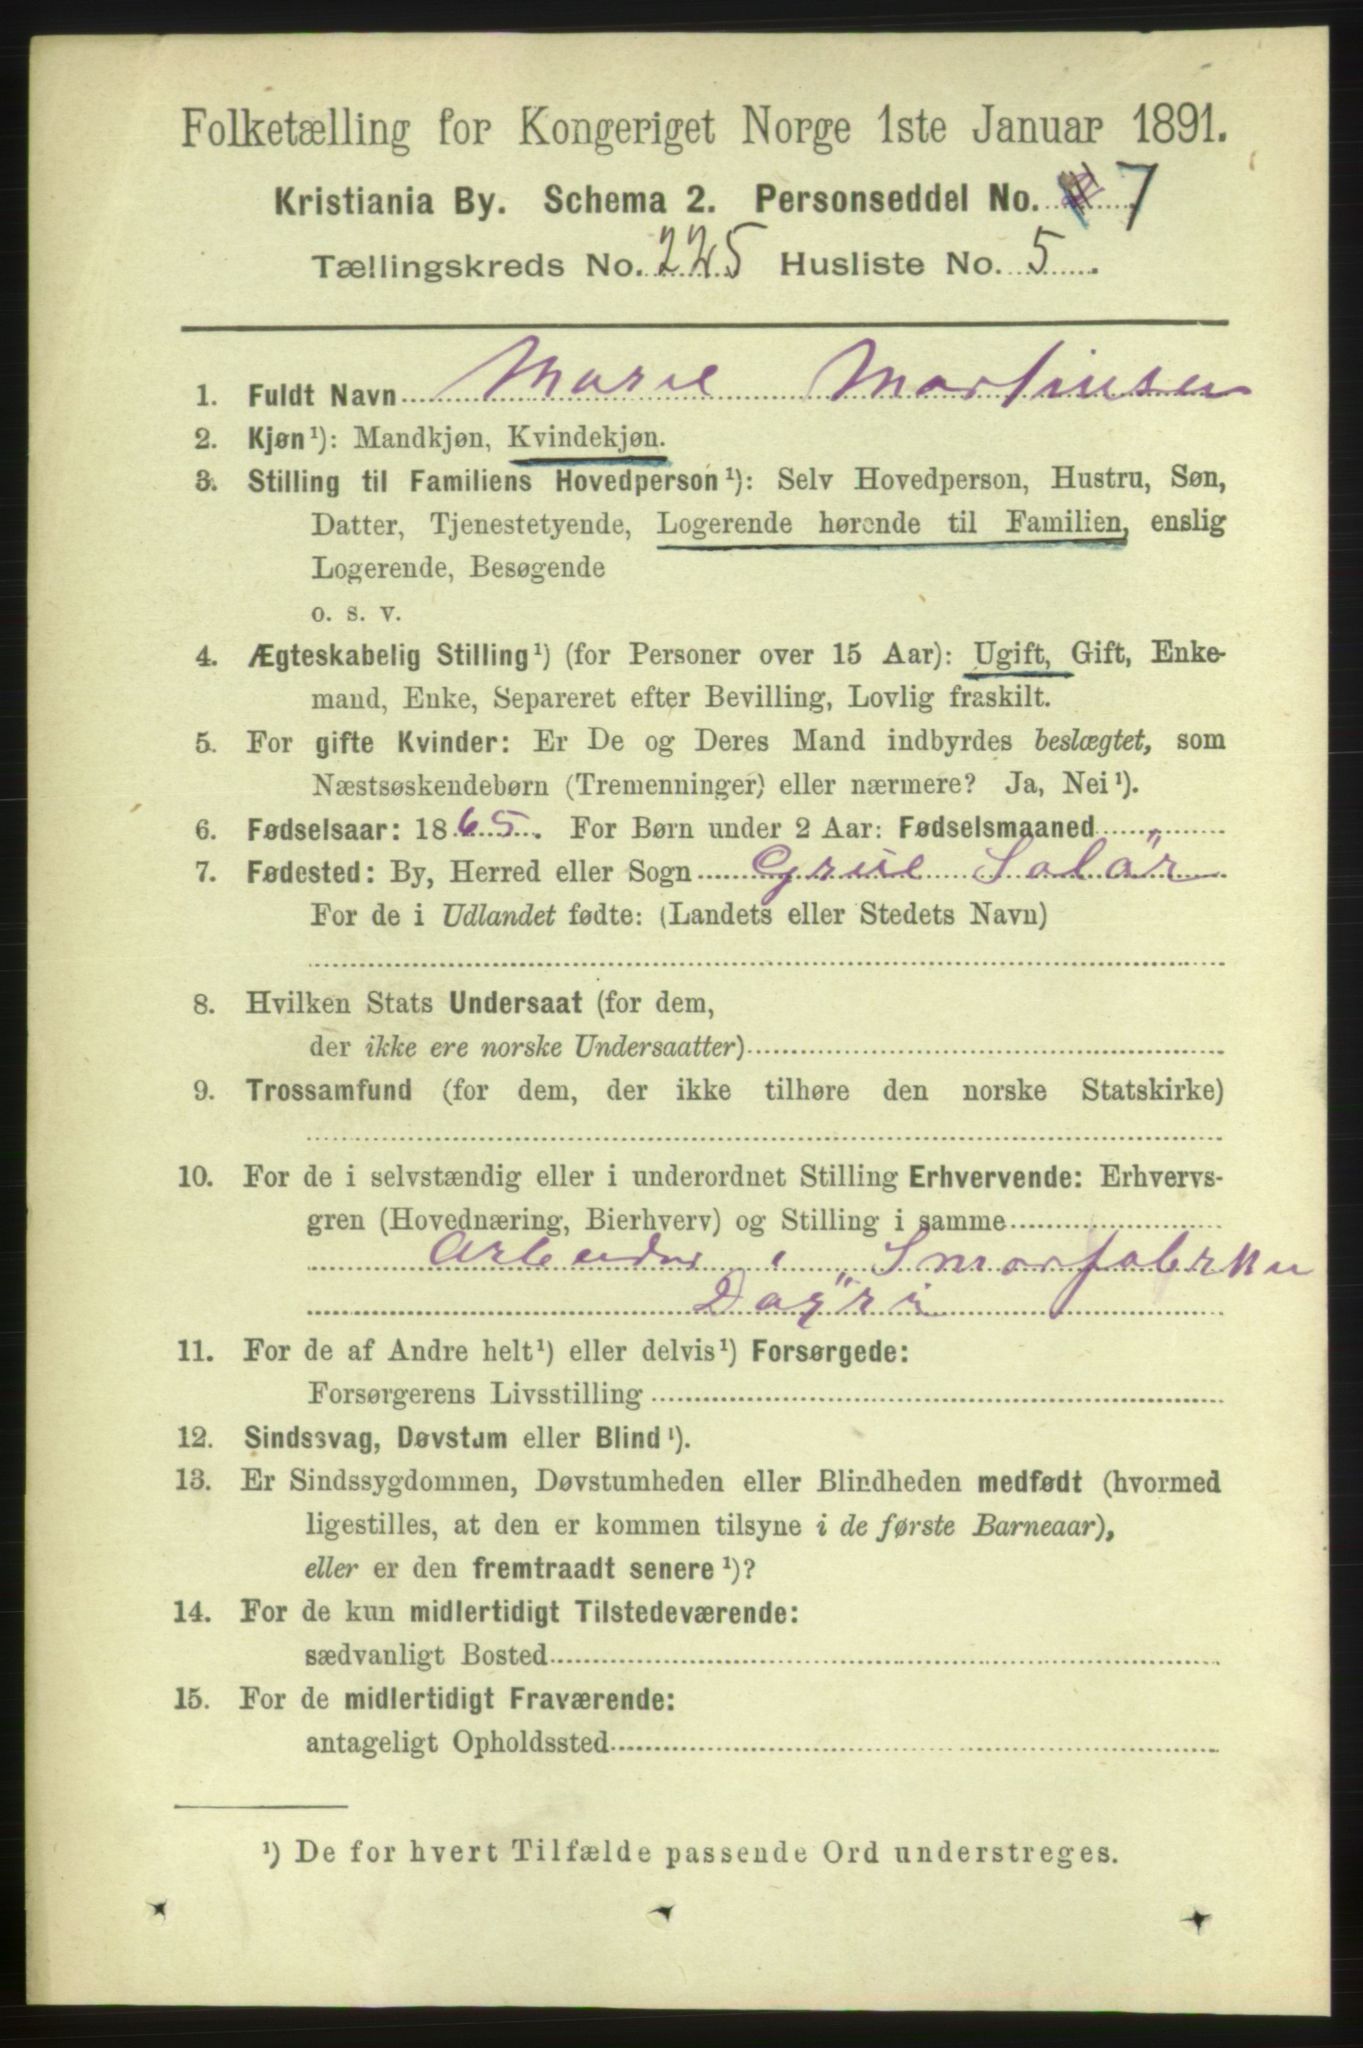 Folketælling for Kongeriget Norge 1ste Januar 1891.
Kristiania By. Schema 2. Personseddel No. 7
Tællingskreds No. 225 Husliste No. 5
1. Fuldt Navn Marie Martinsen
2. Kjøn¹): Mandkjøn, Kvindekjøn.
3. Stilling til Familiens Hovedperson¹): Selv Hovedperson, Hustru, Søn,
Datter, Tjenestetyende, Logerende hørende til Familien, enslig
Logerende, Besøgende
o. s. v.
4. Ægteskabelig Stilling¹) (for Personer over 15 Aar): Ugift, Gift, Enke-
mand, Enke, Separeret efter Bevilling, Lovlig fraskilt.
5. For gifte Kvinder: Er De og Deres Mand indbyrdes beslægtet, som
Næstsøskendebørn (Tremenninger) eller nærmere? Ja, Nei¹).
6. Fødselsaar: 1865. For Børn under 2 Aar: Fødselsmaaned
7. Fødested: By, Herred eller Sogn Grue Solör
For de i Udlandet fødte: (Landets eller Stedets Navn)
8. Hvilken Stats Undersaat (for dem,
der ikke ere norske Undersaatter)
9. Trossamfund (for dem, der ikke tilhøre den norske Statskirke)
10. For de i selvstændig eller i underordnet Stilling Erhvervende: Erhvervs-
gren (Hovednæring, Bierhverv) og Stilling i samme
Arbeider i Smørfabrikken
11. For de af Andre helt¹) eller delvis¹) Forsørgede:
Forsørgerens Livsstilling
12. Sindssvag, Døvstum eller Blind¹).
13. Er Sindssygdommen, Døvstumheden eller Blindheden medfødt (hvormed
ligestilles, at den er kommen tilsyne i de første Barneaar),
eller er den fremtraadt senere¹)?
14. For de kun midlertidigt Tilstedeværende:
sædvanligt Bosted
15. For de midlertidigt Fraværende:
antageligt Opholdssted
¹) De for hvert Tilfælde passende Ord understreges.